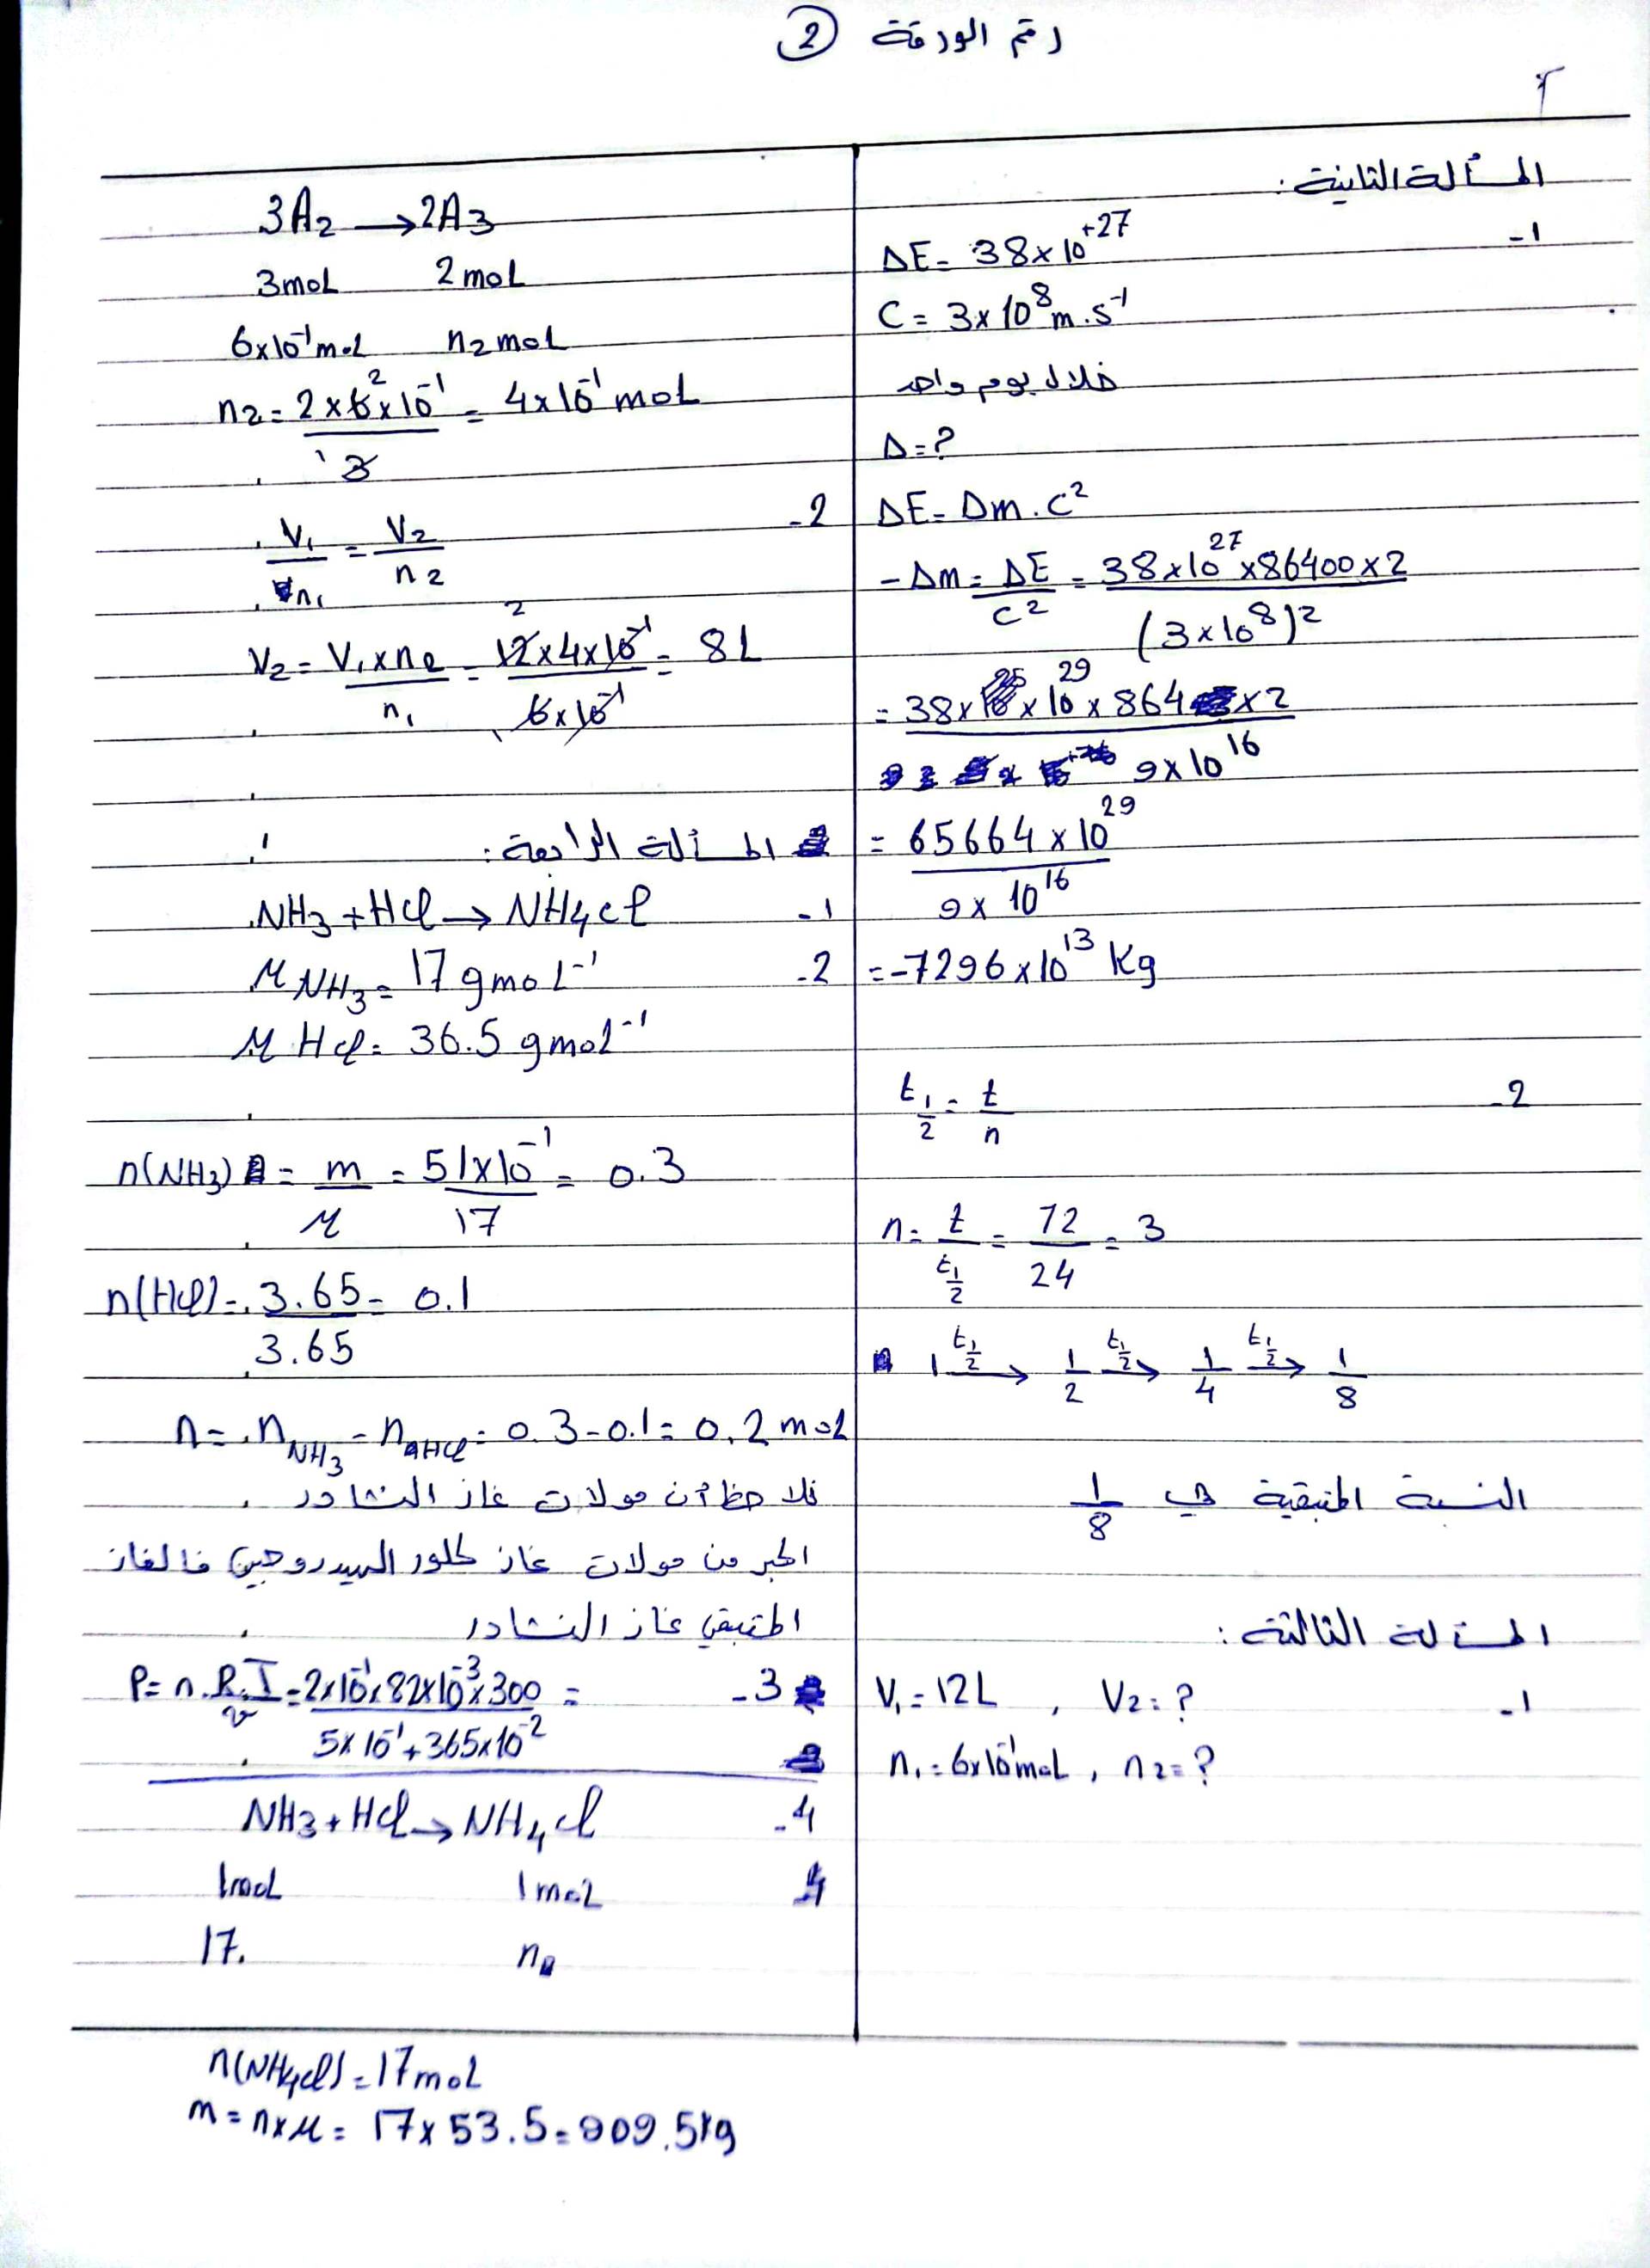 رقم الورقة 2
المسألة الثانية:
1- ΔE = 38×10^+27
C = 3×10^8 m.s^-1
خلال يوم واحد
Δ=?
ΔE = Δm.C^2
-Δm = ΔE/C^2 = 38×10^27×86400×2/(3×10^8)^2
= 38×10^29×864×2/9×10^16
= 65664×10^29/9×10^16
= -7296×10^13 Kg
2- t1/2 = t/n
n = t/t1/2 = 72/24 = 3
1 t1/2→ 1/2 t1/2→ 1/4 t1/2→ 1/8
النسبة المتبقية هي 1/8
المسألة الثالثة:
1- V1 = 12L , V2 = ?
n1 = 6×10^-1 moL , n2 = ?
3A2 → 2A3
3moL 2moL
6×10^-1 moL n2 moL
n2 = 2×6×10^-1/3 = 4×10^-1 moL
2- V1/n1 = V2/n2
V2 = V1×n2/n1 = 12×4×10^-1/6×10^-1 = 8L
المسألة الرابعة:
1- NH3 + HCl → NH4Cl
2- M NH3 = 17 g mol^-1
M HCl = 36.5 g mol^-1
n(NH3) = m/M = 51×10^-1/17 = 0.3
n(HCl) = 3.65/3.65 = 0.1
n = nNH3 - nHCl = 0.3-0.1 = 0.2 mol
نلاحظ أن مولات غاز النشادر
اكبر من مولات غاز كلور الهيدروجين فالغاز
المتبقي غاز النشادر
3- P = n.R.T/v = 2×10^-1×82×10^-3×300/5×10^-1+365×10^-2 =
4- NH3 + HCl → NH4Cl
1moL 1moL
17. n
n(NH4Cl) = 17 moL
m = n×M = 17×53.5 = 909.5 kg